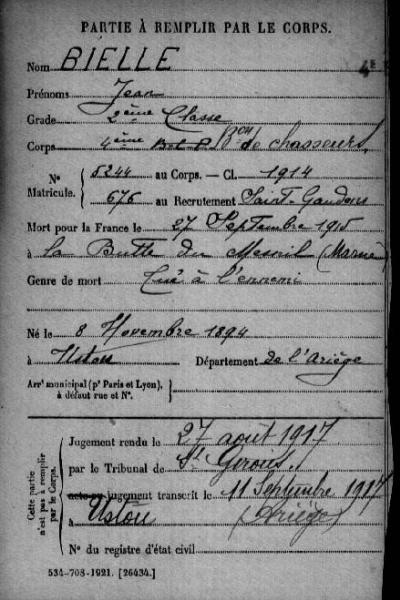 PARTIE À REMPLIR PAR LE CORPS.
Nom BIELLE
Prénoms Jean
Grade 2ème Classe
Corps 4ème Bat de chasseurs
N° Matricule. 5244 au Corps. — Cl. 1914
676 au Recrutement Saint-Gaudens
Mort pour la France le 27 Septembre 1915
à la Butte du Mesnil (Marne)
Genre de mort Tué à l'ennemi
Né le 8 Novembre 1894
à Ustou Département de l'Ariège
Arrt municipal (pr Paris et Lyon), à défaut rue et N°.
Cette partie n'est pas à remplir par le Corps.
Jugement rendu le 27 août 1917
par le Tribunal de St Girons.
acte ou jugement transcrit le 11 Septembre 1917
à Ustou (Ariège)
N° du registre d'état civil
534-708-1921. [26434.]